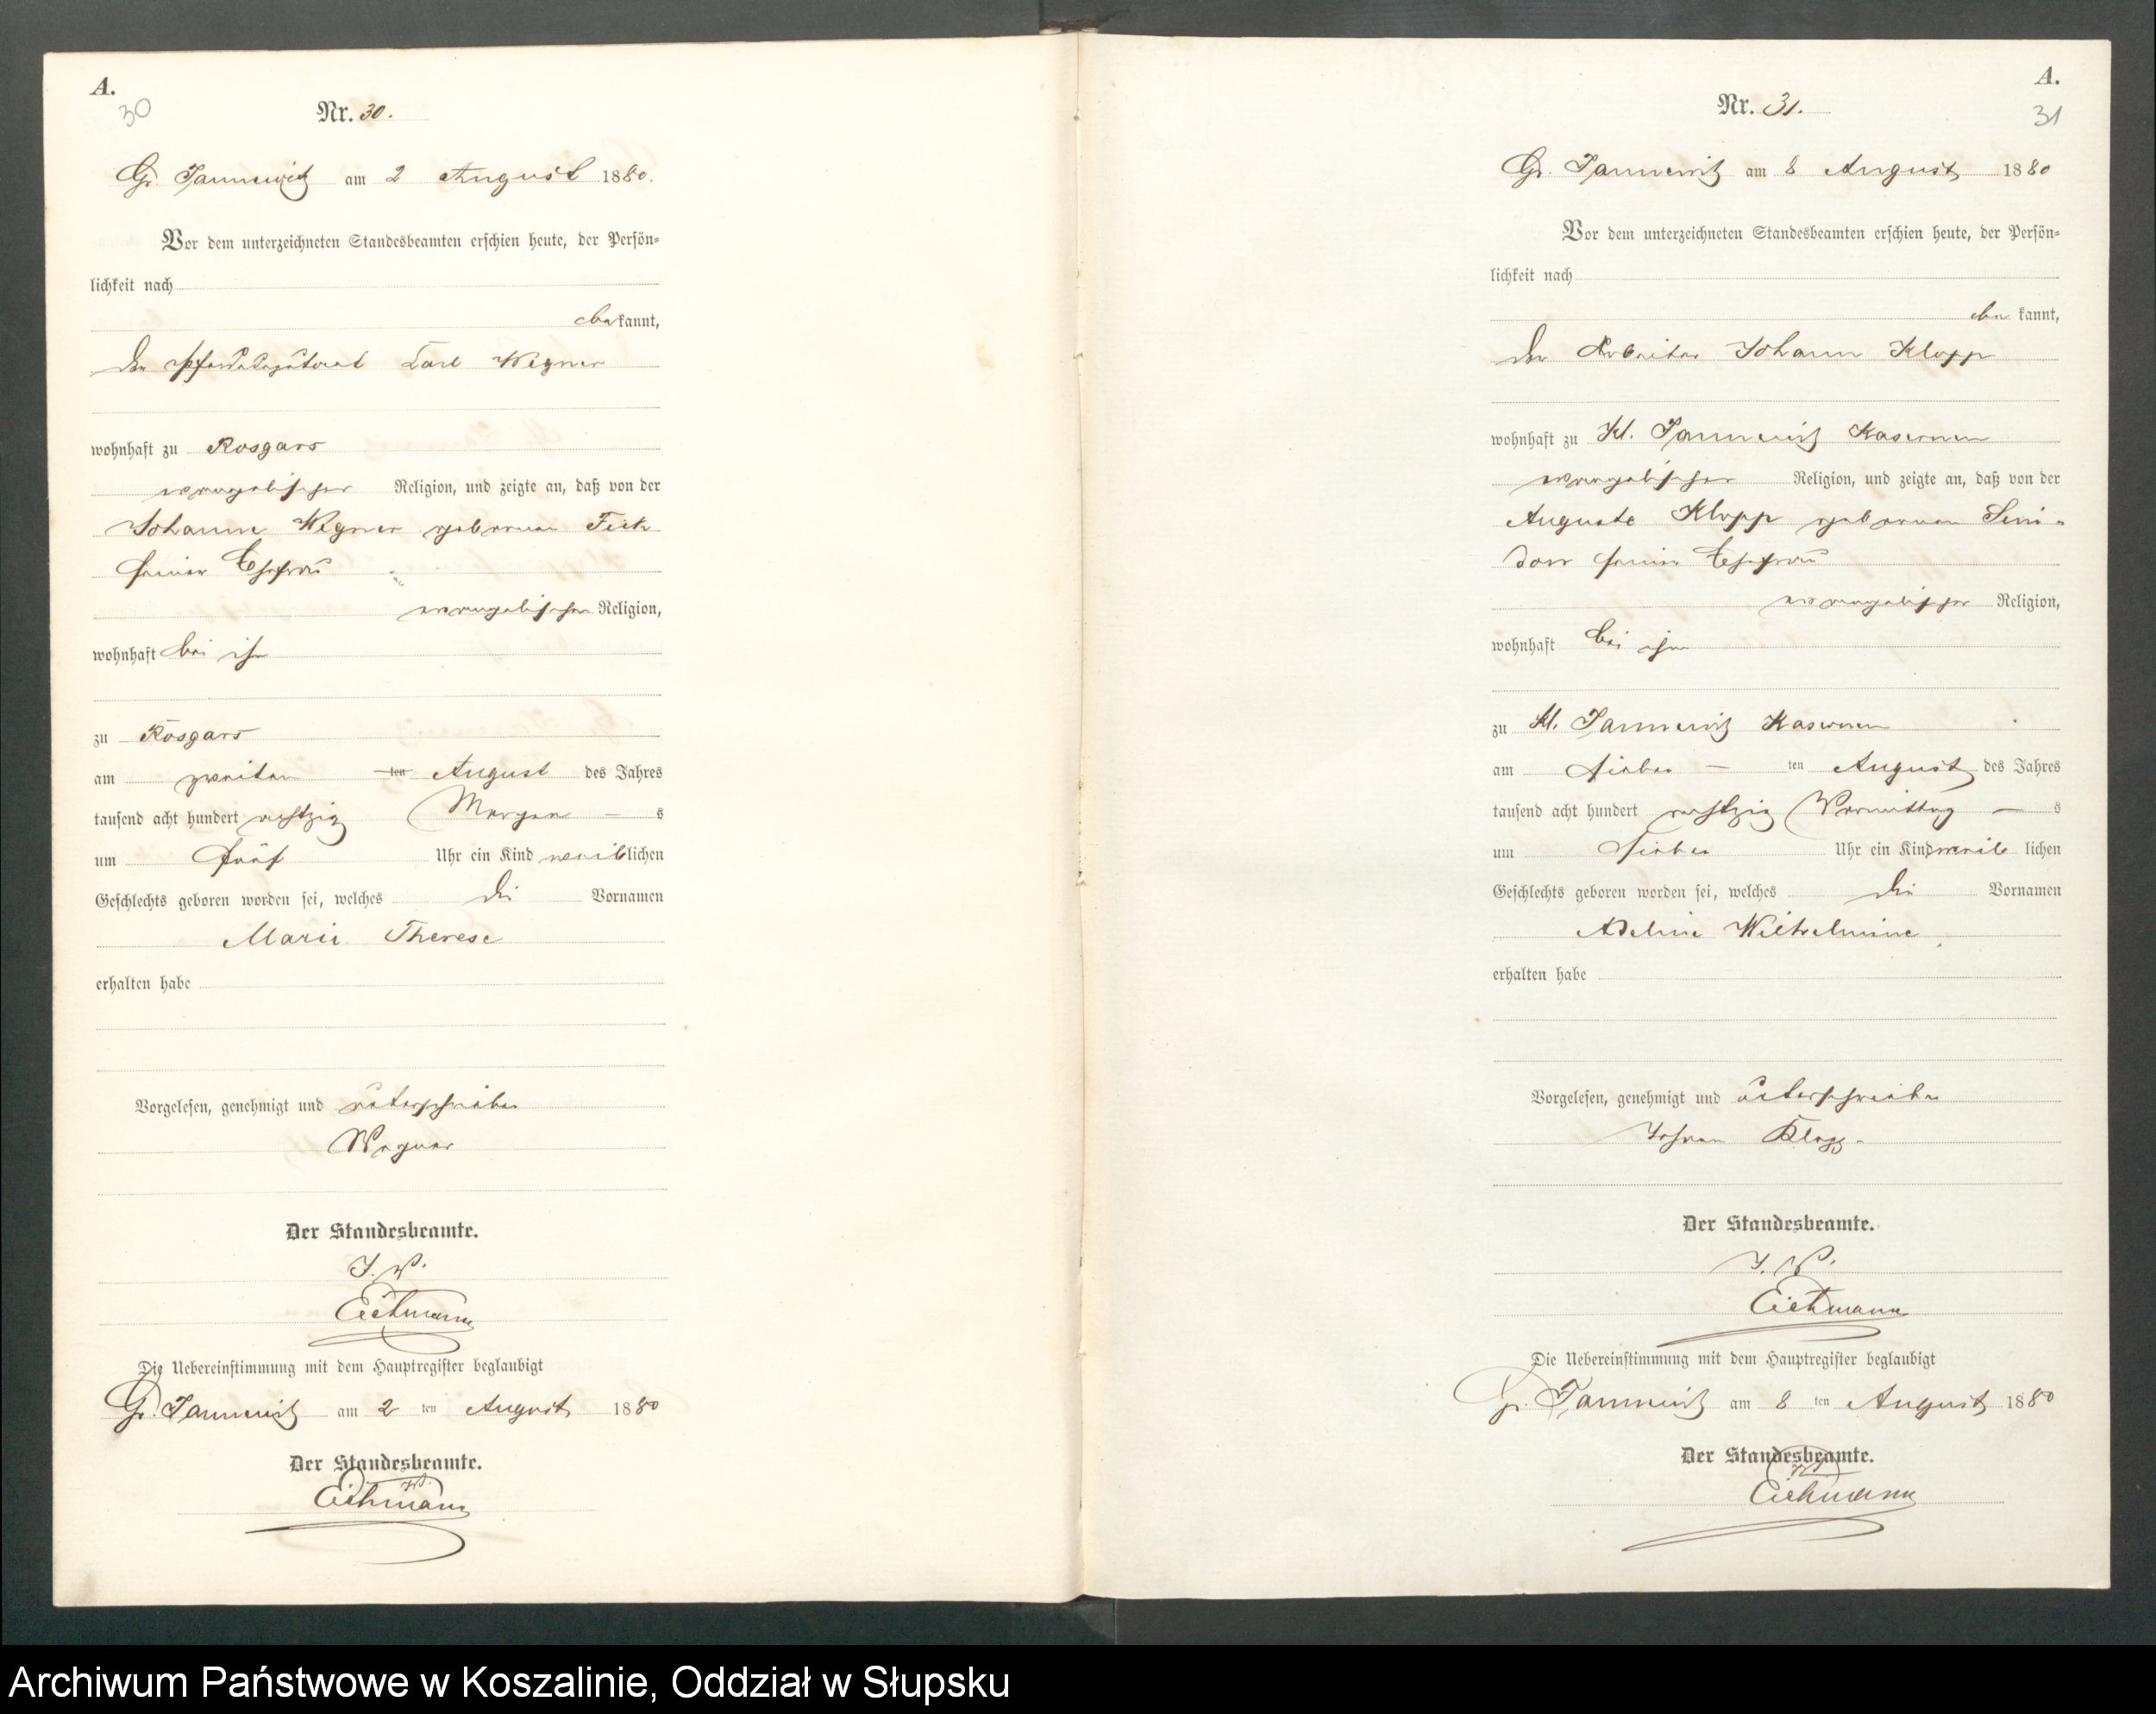 A.
30
Nr. 30.
Gr. Jannewitz am 2 August 1880.
Vor dem unterzeichneten Standesbeamten erschien heute, der Persön=
lichkeit nach
bekannt,
der Carl Wegner
wohnhaft zu Rosgars
evangelischer Religion, und zeigte an, daß von der
Johanne Wegner geborenen Fick
seiner Ehefrau
evangelischer Religion,
wohnhaft bei ihm
zu Rosgars
am zweiten ten August des Jahres
tausend acht hundert achtzig Morgen – s
um fünf Uhr ein Kind weiblichen
Geschlechts geboren worden sei, welches die Vornamen
Marie Therese
erhalten habe
Vorgelesen, genehmigt und unterschrieben
Wegner
Der Standesbeamte.
J. V.
Eichmann
Die Uebereinstimmung mit dem Hauptregister beglaubigt
Gr. Jannewitz am 2 ten August 1880
Der Standesbeamte.
J. V.
Eichmann
A.
31
Nr. 31.
Gr. Jannewitz am 8 August 1880
Vor dem unterzeichneten Standesbeamten erschien heute, der Persön=
lichkeit nach
bekannt,
der Arbeiter Johann Klopp
wohnhaft zu Kl. Jannewitz Kasernen
evangelischer Religion, und zeigte an, daß von der
Auguste Klopp geborenen
seiner Ehefrau
evangelischer Religion,
wohnhaft bei ihm
zu Kl. Jannewitz Kasernen
am sieben – ten August des Jahres
tausend acht hundert achtzig Vormittag – s
um sieben Uhr ein Kind weiblichen
Geschlechts geboren worden sei, welches die Vornamen
Adeline Wilhelmine
erhalten habe
Vorgelesen, genehmigt und unterschrieben
Johann Klopp
Der Standesbeamte.
J. V.
Eichmann
Die Uebereinstimmung mit dem Hauptregister beglaubigt
Gr. Jannewitz am 8 ten August 1880
Der Standesbeamte.
J. V.
Eichmann
Archiwum Państwowe w Koszalinie, Oddział w Słupsku